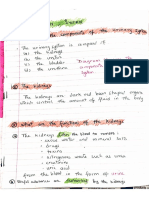 the components of the urinary system
The urinary system is composed of
(i) the kidneys
(ii) the ureters
(iii) the bladder
(iv) the urethra
Diagram
components
system
The kidneys
The kidneys are dark red bean shaped organs
which control the amount of fluid in the body
What are the functions of the kidneys
The kidneys filter the blood to remove:
excess water and mineral salts
drugs
toxins
nitrogenous wastes such as urea
from the blood in the form of urine
Useful substances are reabsorbed by the kidneys